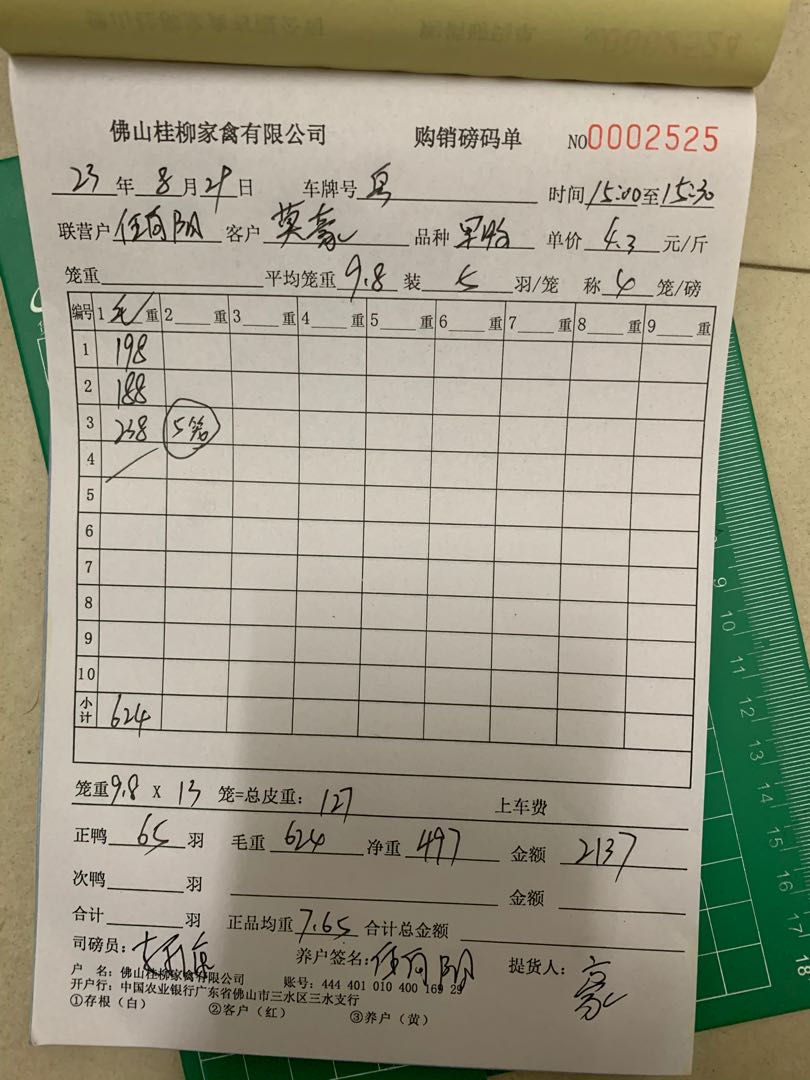 佛山桂柳家禽有限公司 购销磅码单 NO0002525
23年8月29日 车牌号 时间15:00至15:30
联营户任向阳 客户莫豪 品种 单价4.3元/斤
笼重 平均笼重9.8 装5羽/笼 称4笼/磅
编号 1毛重 2重 3重 4重 5重 6重 7重 8重 9重
1 198
2 188
3 238 5笼
4
5
6
7
8
9
10
小计 624
笼重9.8 X 13 笼=总皮重：127 上车费
正鸭65羽 毛重624 净重497 金额2137
次鸭 羽 金额
合计 羽 正品均重7.65 合计总金额
司磅员： 养户签名：任向阳 提货人：豪
户 名：佛山桂柳家禽有限公司 账号：444 401 010 400 169 29
开户行：中国农业银行广东省佛山市三水区三水支行
①存根（白） ②客户（红） ③养户（黄）
9
10
11
12
13
14
15
16
17
18